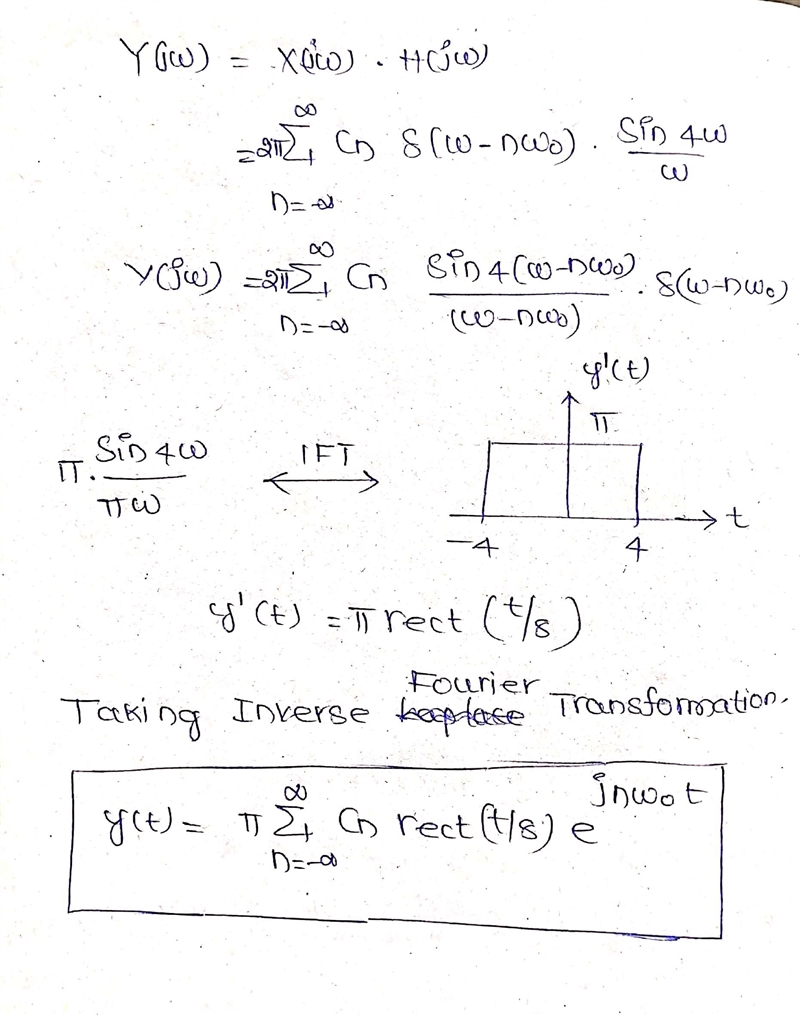 Y(jω) = X(jω) . H(jω)
= 2π ∑ Cn δ(ω-nω0) . Sin 4ω / ω
∞
n=-∞
Y(jω) = 2π ∑ Cn Sin 4(ω-nω0) / (ω-nω0) . δ(ω-nω0)
∞
n=-∞
y'(t)
π
π. Sin 4ω / πω ⟷ IFT
t
-4 4
y'(t) = π rect (t/8)
Taking Inverse Fourier Transformation.
y(t) = π ∑ Cn rect (t/8) e^jnω0t
∞
n=-∞